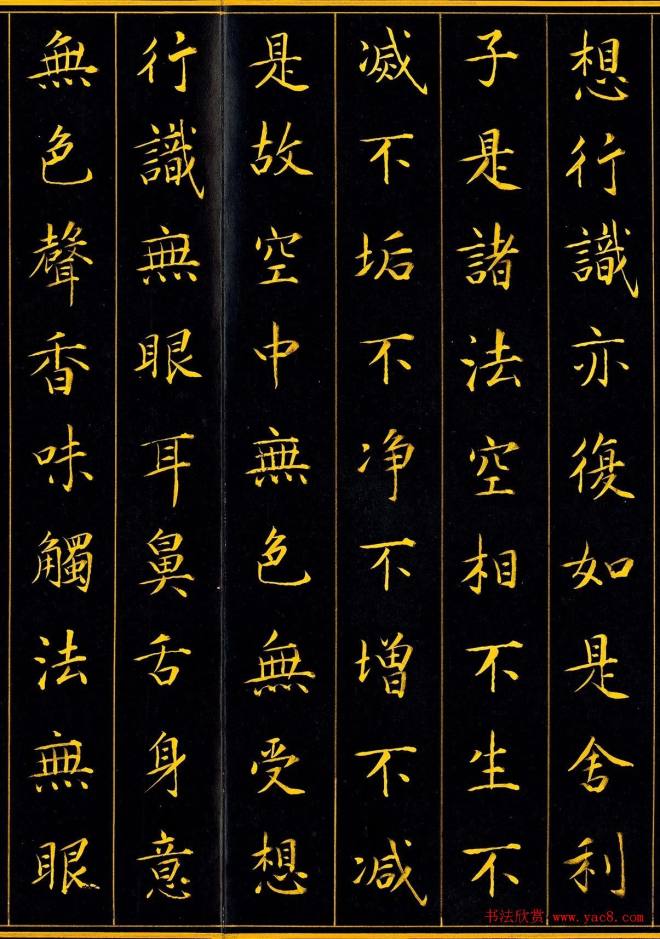 想行識亦復如是舍利
子是諸法空相不生不
滅不垢不净不增不减
是故空中無色無受想
行識無眼耳鼻舌身意
無色聲香味觸法無眼
书法欣赏 www.yac8.com